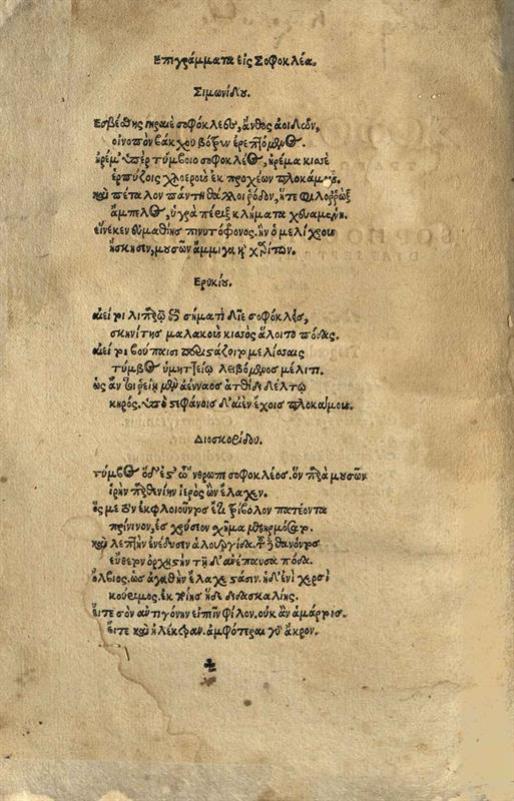 Επιγράμματα εἰς Σοφοκλέα.
Σιμωνίδου.
Εσβέσθης γηραιὲ σοφόκλεες, ἄνθος ἀοιδῶν,
οἰνοπὸν βάκχου βότρυν ἐρεπτόμενος.
ἠρέμ' ὑπὲρ τύμβοιο σοφοκλέος, ἠρέμα κισσὲ
ἑρπύζοις χλοεροὺς ἐκ προχέων πλοκάμους.
καὶ πέταλον πάντη θάλλοι ῥόδον, ἥτε φιλορρὼξ
ἄμπελος, ὑγρὰ πέριξ κλήματα χευαμένη.
εἵνεκεν εὐμαθίης πινυτόφρονος. ἣν ὁ μελίχρους
ἤσκησεν, μουσῶν ἄμμιγα καὶ χαρίτων.
Ερυκίου.
Αἰεί τοι λιπαρῷ ἐπὶ σήματι δῖε σοφόκλες,
σκηνίτης μαλακοὺς κισσὸς ἅλοιτο πόδας.
αἰεί τοι βούπαισι περιστάζοιτο μελίσσαις
τύμβος ὑμηττείῳ λειβόμενος μέλιτι.
ὡς ἄν τοι ῥείη μὲν ἀένναος ἀτθίδι δέλτῳ
κηρός. ὑπὸ στεφάνοις δ' αἰὲν ἔχοις πλοκάμους.
Διοσκορίδου.
τύμβος ὅδ' ἔστ' ὤνθρωπε σοφοκλέος. ὃν παρὰ μουσῶν
ἱρὴν παρθενίην ἱερὸς ὢν ἔλαχεν.
ὅς με τὸν ἐκ φλιοῦντος ἔτι τρίβολον πατέοντα
πρίνινον, ἐς χρύσεον σχῆμα μεθηρμόσατο.
καὶ λεπτὴν ἐνέδυσιν ἁλουργίδα. τοῦ δὲ θανόντος
εὔθετον ὀρχηστὴν τῇ δ' ἀνέπαυσα πόδα.
ὄλβιος, ὡς ἀγαθὴν ἔλαχες στάσιν. ἡ δ' ἐνὶ χερσὶ
κούριμος. ἐκ ποίης ἥδε διδασκαλίης.
εἴτε σὸν ἀντιγόνην εἰπεῖν φίλον. οὐκ ἂν ἁμάρτοις.
εἴτε καὶ ἠλέκτραν. ἀμφότεραι γὰρ ἄκρον.